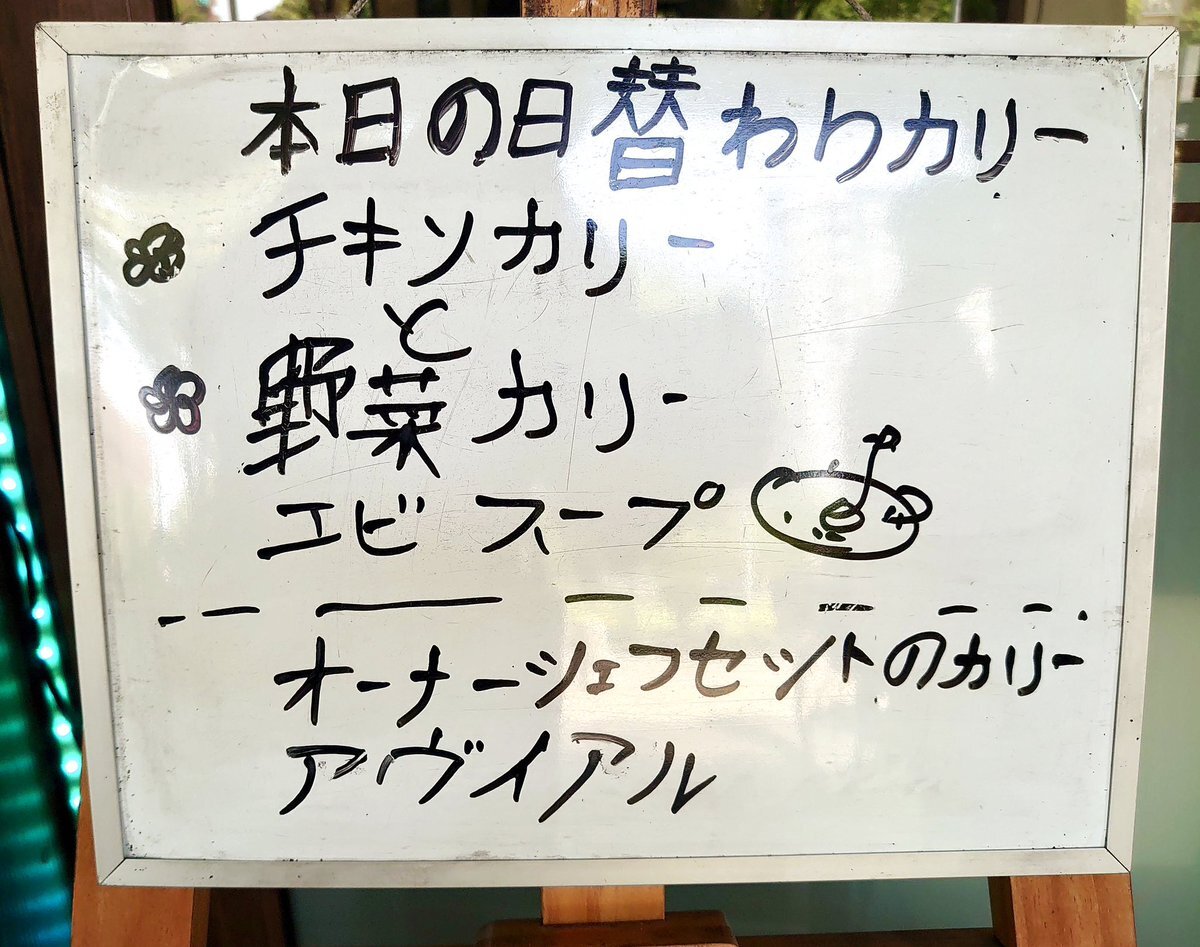 本日の日替わりカリー
チキンカリー
と
野菜カリー
エビスープ
オーナーシェフセットのカリー
アヴィアル